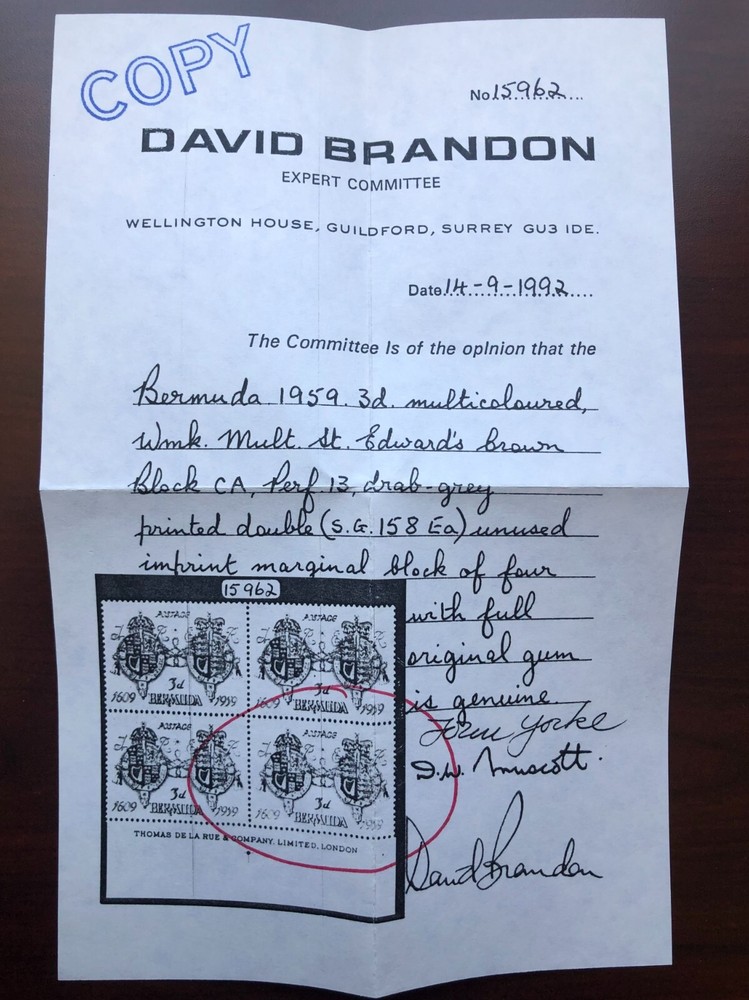 COPY
No 15962
DAVID BRANDON
EXPERT COMMITTEE
WELLINGTON HOUSE, GUILDFORD, SURREY GU3 IDE.
Date 14-9-1992
The Committee Is of the opInion that the
Bermuda 1959. 3d. multicoloured,
Wmk. Mult. St. Edward's brown
Block CA, Perf. 13, drab-grey
printed double (S.G. 158 Ea) unused
imprint marginal block of four
15962
with full
original gum
is genuine.
POSTAGE POSTAGE
3d 3d
1609 BERMUDA 1959 1609 BERMUDA 1959
POSTAGE POSTAGE
3d 3d
1609 BERMUDA 1959 1609 BERMUDA 1959
THOMAS DE LA RUE & COMPANY, LIMITED, LONDON
Yorke
D.W.
David Brandon